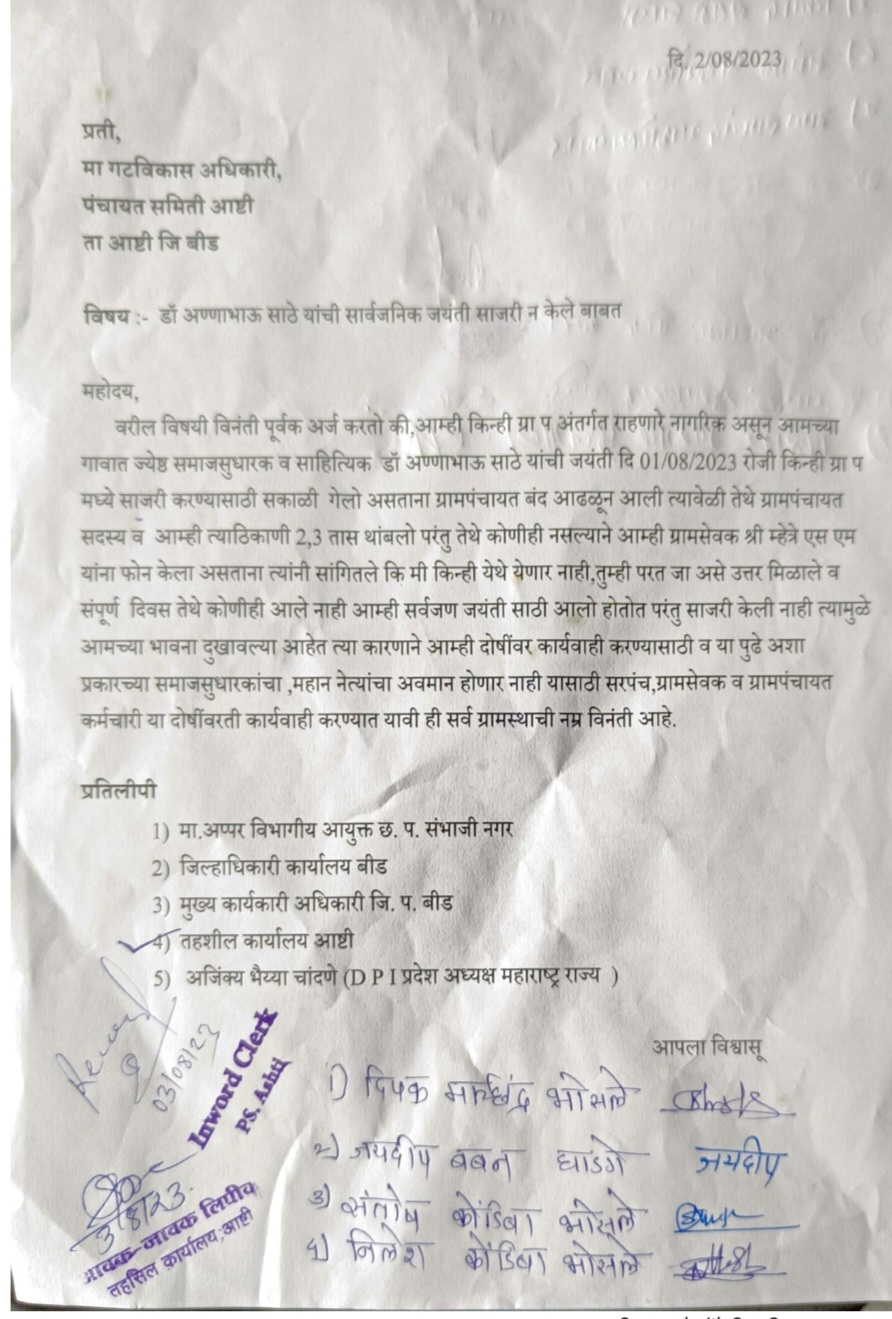 दि. 2/08/2023
प्रती,
मा गटविकास अधिकारी,
पंचायत समिती आष्टी
ता आष्टी जि बीड
विषय :- डॉ अण्णाभाऊ साठे यांची सार्वजनिक जयंती साजरी न केले बाबत
महोदय,
वरील विषयी विनंती पूर्वक अर्ज करतो की,आम्ही किन्ही ग्रा प अंतर्गत राहणारे नागरिक असून आमच्या
गावात ज्येष्ठ समाजसुधारक व साहित्यिक डॉ अण्णाभाऊ साठे यांची जयंती दि 01/08/2023 रोजी किन्ही ग्रा प
मध्ये साजरी करण्यासाठी सकाळी गेलो असताना ग्रामपंचायत बंद आढळून आली त्यावेळी तेथे ग्रामपंचायत
सदस्य व आम्ही त्याठिकाणी 2,3 तास थांबलो परंतु तेथे कोणीही नसल्याने आम्ही ग्रामसेवक श्री म्हेत्रे एस एम
यांना फोन केला असताना त्यांनी सांगितले कि मी किन्ही येथे येणार नाही,तुम्ही परत जा असे उत्तर मिळाले व
संपूर्ण दिवस तेथे कोणीही आले नाही आम्ही सर्वजण जयंती साठी आलो होतोत परंतु साजरी केली नाही त्यामुळे
आमच्या भावना दुखावल्या आहेत त्या कारणाने आम्ही दोषींवर कार्यवाही करण्यासाठी व या पुढे अशा
प्रकारच्या समाजसुधारकांचा ,महान नेत्यांचा अवमान होणार नाही यासाठी सरपंच,ग्रामसेवक व ग्रामपंचायत
कर्मचारी या दोषींवरती कार्यवाही करण्यात यावी ही सर्व ग्रामस्थाची नम्र विनंती आहे.
प्रतिलीपी
1) मा.अप्पर विभागीय आयुक्त छ. प. संभाजी नगर
2) जिल्हाधिकारी कार्यालय बीड
3) मुख्य कार्यकारी अधिकारी जि. प. बीड
4) तहशील कार्यालय आष्टी
5) अजिंक्य भैय्या चांदणे (D P I प्रदेश अध्यक्ष महाराष्ट्र राज्य )
आपला विश्वासू
03/08/23
Inword Clerk
PS. Ashti
1) दिपक मच्छिंद्र भोसले
2) जयदीप बबन घाडगे जयदीप
3) संतोष कोंडिबा भोसले
4) निलेश कोंडिबा भोसले
3/8/23
आवक-जावक लिपीक
तहसिल कार्यालय,आष्टी